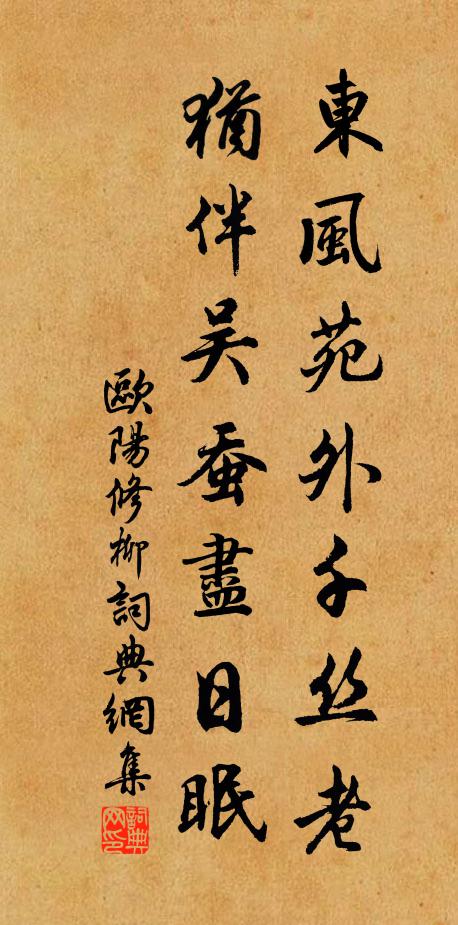 東風苑外千丝老
猶伴吴蚕盡日眠
歐陽修柳詞典網集
詞典网印